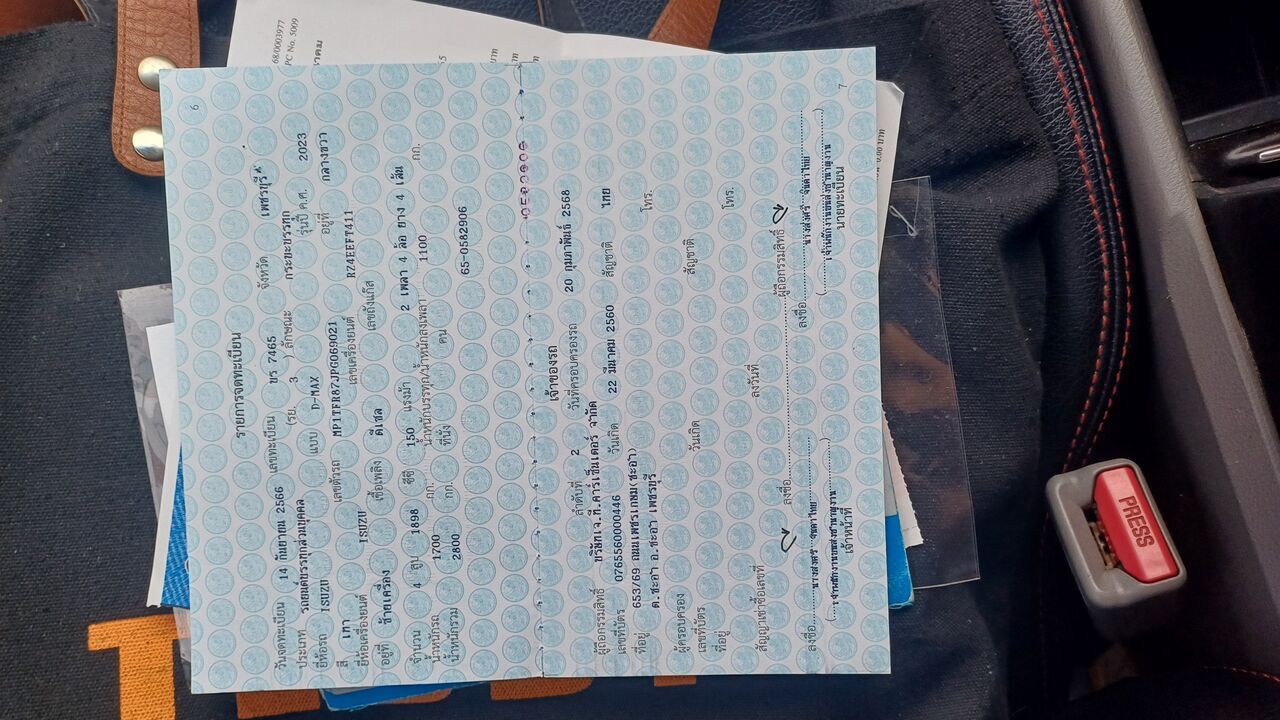 68/0003977
PC No. 5009
6
รายการจดทะเบียน
วันจดทะเบียน 14 กันยายน 2566 เลขทะเบียน ขร 7465 จังหวัด เพชรบุรี
ประเภท รถยนต์บรรทุกส่วนบุคคล (รย. 3 ) ลักษณะ กระบะบรรทุก
ยี่ห้อรถ ISUZU แบบ D-MAX รุ่นปี ค.ศ. 2023
สี เทา เลขตัวรถ MP1TFR87JPG069021 อยู่ที่ กลางขวา
ยี่ห้อเครื่องยนต์ ISUZU เลขเครื่องยนต์ RZ4EEFT411
อยู่ที่ ซ้ายเครื่อง เชื้อเพลิง ดีเซล เลขถังแก๊ส
จำนวน 4 สูบ 1898 ซีซี 150 แรงม้า 2 เพลา 4 ล้อ ยาง 4 เส้น
น้ำหนักรถ 1700 กก. น้ำหนักบรรทุก/น้ำหนักลงเพลา 1100 กก.
น้ำหนักรวม 2800 กก. ที่นั่ง คน
65-0582906
0582906
เจ้าของรถ
ลำดับที่ 2 วันที่ครอบครองรถ 20 กุมภาพันธ์ 2568
ผู้ถือกรรมสิทธิ์ บริษัทเจ.ที.คาร์เซ็นเตอร์ จำกัด
เลขที่บัตร 0765560000446 วันเกิด 22 มีนาคม 2560 สัญชาติ ไทย
ที่อยู่ 653/69 ถนนเพชรเกษม(ชะอำ) โทร.
ต.ชะอำ อ.ชะอำ เพชรบุรี
ผู้ครอบครอง
เลขที่บัตร วันเกิด สัญชาติ
ที่อยู่ โทร.
สัญญาเช่าซื้อเลขที่ ลงวันที่
ลงชื่อ ผู้ถือกรรมสิทธิ์
ลงชื่อ ลงชื่อ
เจ้าหน้าที่ นายทะเบียน
7
0.00 บาท
PRESS